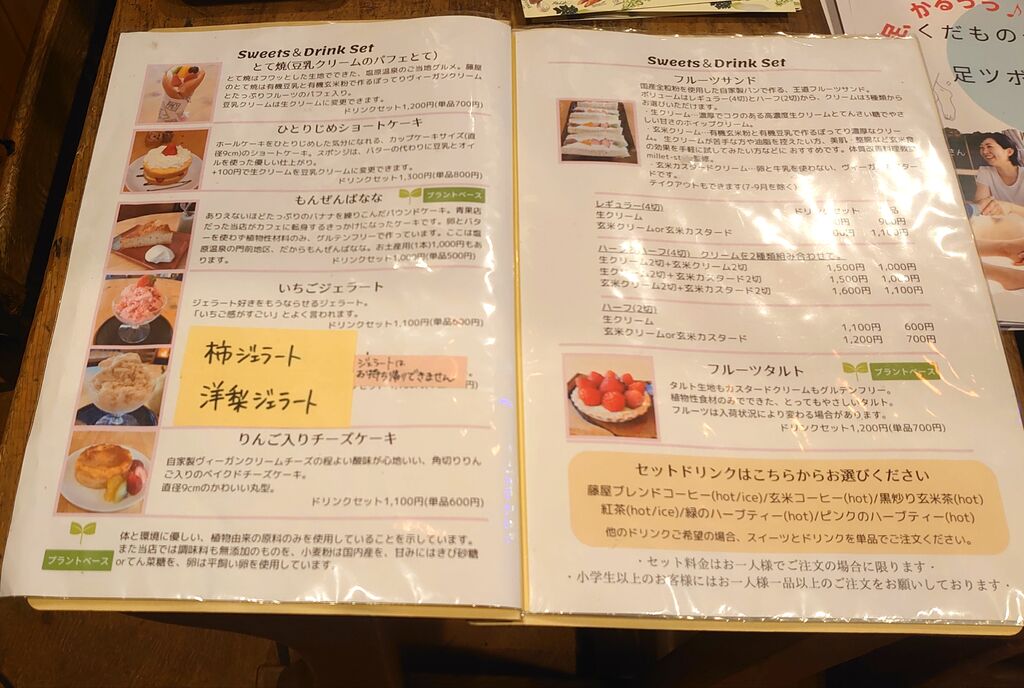 Sweets&Drink Set
とて焼(豆乳クリームのパフェとて)
とて焼はフワッとした生地でできた、塩原温泉のご当地グルメ。藤屋
のとて焼は有機豆乳と有機玄米粉で作るぽってりヴィーガンクリーム
とたっぷりフルーツのパフェ入り。
豆乳クリームは生クリームに変更できます。
ドリンクセット1,200円(単品700円)
ひとりじめショートケーキ
ホールケーキをひとりじめした気分になれる、カップケーキサイズ(直
径9cm)のショートケーキ。スポンジは、バターの代わりに豆乳とオイ
ルを使った優しい仕上がり。
+100円で生クリームを豆乳クリームに変更できます。
ドリンクセット1,300円(単品800円)
もんぜんばなな
プラントベース
ありえないほどたっぷりのバナナを練りこんだパウンドケーキ。青果店
だった当店がカフェに転身するきっかけになったケーキです。卵とバタ
ーを使わず植物性材料のみ、グルテンフリーで作っています。ここは塩
原温泉の門前地区、だからもんぜんばなな。お土産用(1本)1,000円もあ
ります。
ドリンクセット1,000円(単品500円)
いちごジェラート
ジェラート好きをもうならせるジェラート。
「いちご感がすごい」とよく言われます。
ドリンクセット1,100円(単品600円)
柿ジェラート
洋梨ジェラート
ジェラートは
お持ち帰りできません
りんご入りチーズケーキ
自家製ヴィーガンクリームチーズの程よい酸味が心地いい、角切りりん
ご入りのベイクドチーズケーキ。
直径9cmのかわいい丸型。
ドリンクセット1,100円(単品600円)
プラントベース
体と環境に優しい、植物由来の原料のみを使用していることを示しています。
また当店では調味料も無添加のものを、小麦粉は国内産を、甘みにはきび砂糖
orてん菜糖を、卵は平飼い卵を使用しています。
Sweets&Drink Set
フルーツサンド
国産全粒粉を使用した自家製パンで作る、王道フルーツサンド。
ボリュームはレギュラー(4切)とハーフ(2切)から、クリームは3種類から
お選びいただけます。
・生クリーム…濃厚でコクのある高濃度生クリームとてんさい糖でやさ
しい甘さのホイップクリーム。
・玄米クリーム…有機玄米粉と有機豆乳で作るぽってり濃厚なクリー
ム。生クリームが苦手な方や油脂を控えたい方、美肌・整腸など玄米食
の効果を手軽に試してみたい方などにおすすめです。体質改善料理教室
millet-st 監修。
・玄米カスタードクリーム…卵と牛乳を使わない、ヴィーガン
ドです。
テイクアウトもできます(7-9月を除く)
レギュラー(4切)
ドリンクセット
品
生クリーム
900円
玄米クリームor玄米カスタード
ハーフ&ハーフ(4切) クリームを2種類組み合わせて。
生クリーム2切+玄米クリーム2切 1,500円 1,000円
生クリーム2切+玄米カスタード2切 1,500円 1,000円
玄米クリーム2切+玄米カスタード2切 1,600円 1,100円
ハーフ(2切)
生クリーム 1,100円 600円
玄米クリームor玄米カスタード 1,200円 700円
フルーツタルト
プラントベース
タルト生地もカスタードクリームもグルテンフリー。
植物性食材のみでできた、とってもやさしいタルト。
フルーツは入荷状況により変わる場合があります。
ドリンクセット1,200円(単品700円)
セットドリンクはこちらからお選びください
藤屋ブレンドコーヒー(hot/ice)/玄米コーヒー(hot)/黒炒り玄米茶(hot)
紅茶(hot/ice)/緑のハーブティー(hot)/ピンクのハーブティー(hot)
他のドリンクご希望の場合、スイーツとドリンクを単品でご注文ください。
・セット料金はお一人でご注文の場合に限ります・
・小学生以上のお客様にはお一人様一品以上のご注文をお願いしております・
かるっっ♪
くだもの
足ツボ
さん